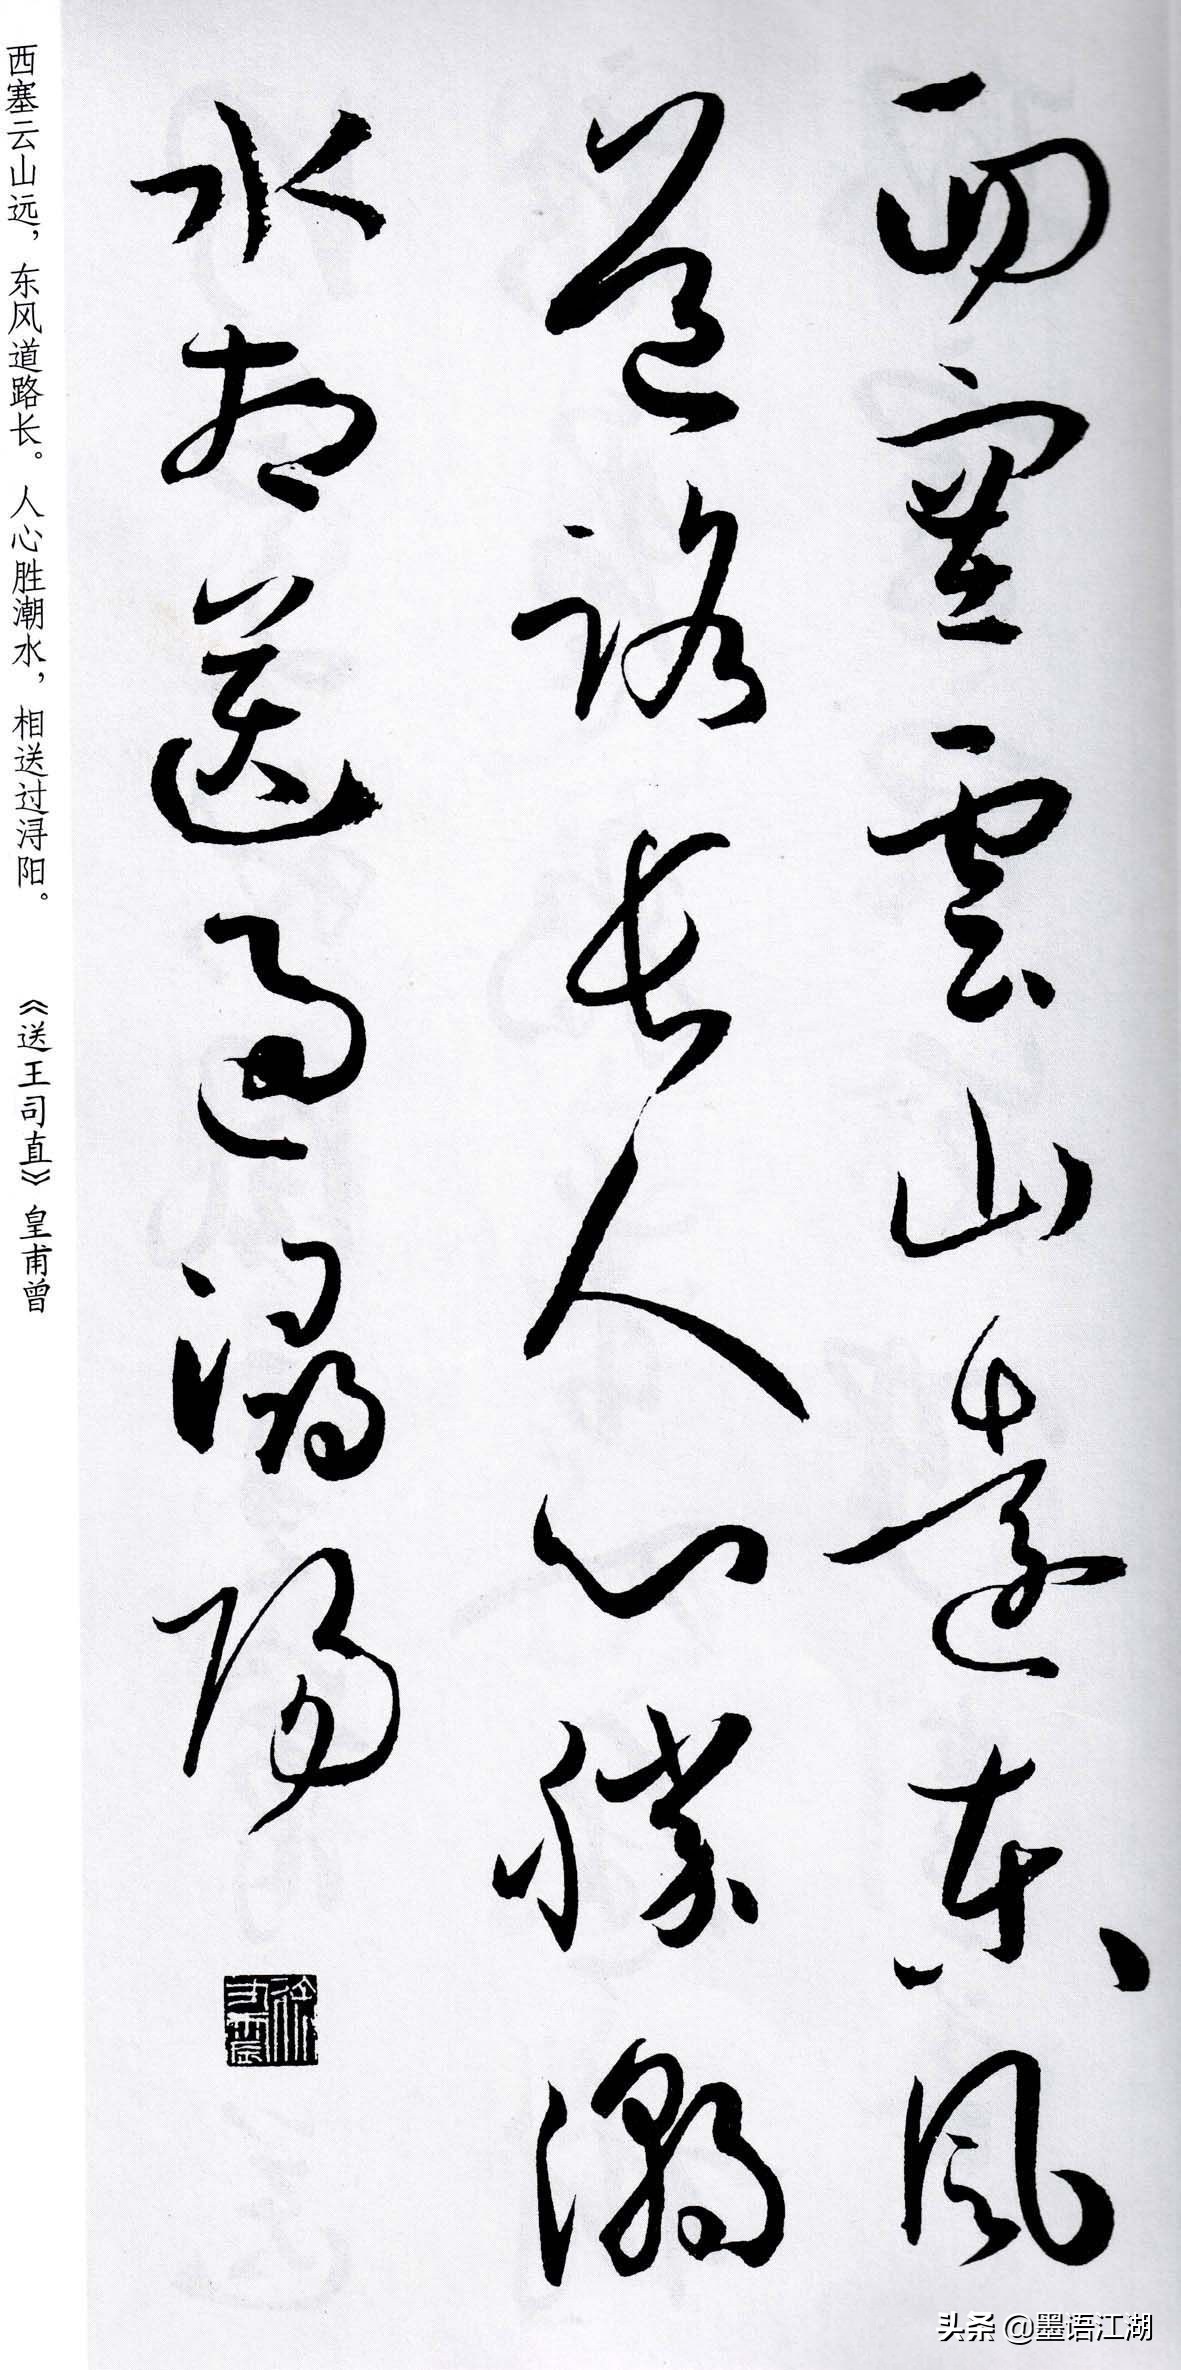 西塞雲山遠東風
道路長人心勝潮
水相送過潯陽
西塞云山远，东风道路长。人心胜潮水，相送过浔阳。 《送王司直》皇甫曾
头条 @墨语江湖